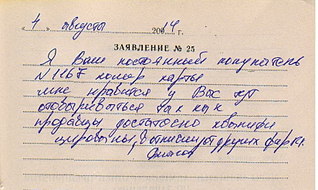 "4" августа 2004 г.
ЗАЯВЛЕНИЕ № 25
Я Ваш постоянный покупатель
N 1267 номер карты
мне нравится у Вас тут
отовариваться так как
продавцы достаточно квалифи
цированы, в отличии от других фирм.